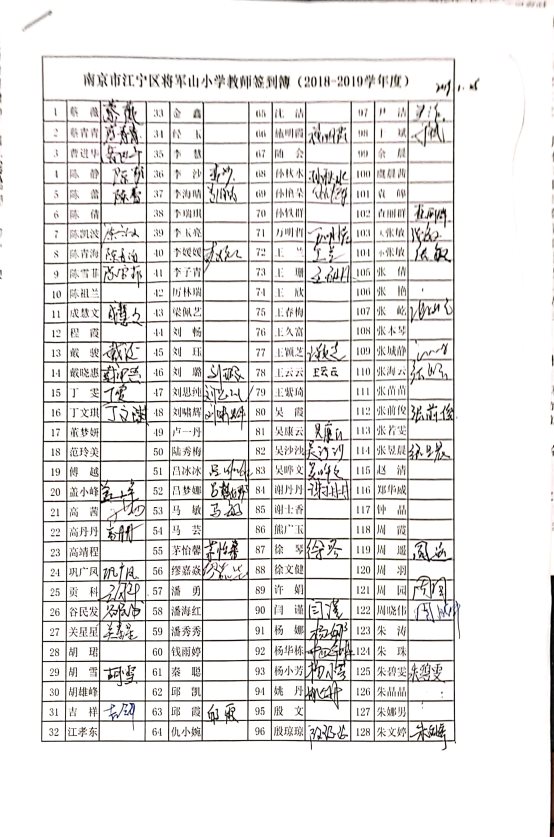 南京市江宁区将军山小学教师签到簿（2018-2019学年度）
1 蔡薇 蔡薇 33 金鑫 65 沈洁 97 尹洁
2 蔡青青 34 经玉 66 施明霞 施明霞 98 于斌
3 曹进华 35 李慧 67 随会 99 余晨
4 陈静 陈静 36 李沙 李沙 68 孙秋水 孙秋水 100 虞晨茜
5 陈蕾 陈蕾 37 李海晴 69 孙艳荣 101 袁峰
6 陈倩 38 李瑞琪 70 孙轶群 102 袁丽群 袁丽群
7 陈凯波 39 李玉亮 71 万明哲 103 大张敏 张敏
8 陈青海 陈青海 40 李媛媛 72 王兰 王兰 104 小张敏 张敏
9 陈雪菲 陈雪菲 41 李子青 73 王珊 王珊 105 张倩
10 陈祖兰 42 厉林瑞 74 王欣 106 张艳
11 成慧文 成慧文 43 梁佩艺 75 王春梅 107 张屹
12 程霞 44 刘畅 76 王久富 108 张本琴
13 戴骏 戴骏 45 刘珏 77 王颖芝 109 张城静
14 戴晓惠 戴晓惠 46 刘璐 78 王云云 王云云 110 张海云
15 丁雯 丁雯 47 刘思纯 79 王紫琦 111 张苗苗
16 丁文琪 丁文琪 48 刘啸辉 80 吴霞 112 张前俊 张前俊
17 董梦妍 49 卢一丹 81 吴康云 吴康云 113 张若雯
18 范玲美 50 陆秀梅 82 吴沙沙 吴沙沙 114 张昱晨
19 傅越 51 吕冰冰 吕冰冰 83 吴晔文 115 赵清
20 盖小峰 52 吕梦娜 吕梦娜 84 谢丹丹 谢丹丹 116 郑华威
21 高茜 53 马敏 马敏 85 谢士香 117 钟晶
22 高丹丹 54 马芸 86 熊广玉 118 周霞
23 高靖程 55 茅怡馨 茅怡馨 87 徐琴 徐琴 119 周遥 周遥
24 巩广凤 巩广凤 56 缪嘉焱 88 徐文健 120 周羽
25 贡科 57 潘勇 89 许娟 121 周园 周园
26 谷民发 58 潘海红 90 闫谨 闫谨 122 周晓伟
27 关星星 关星星 59 潘秀秀 91 杨娜 杨娜 123 朱涛
28 胡珺 60 钱雨婷 92 杨华栋 124 朱珠
29 胡雪 胡雪 61 秦聪 93 杨小芳 125 朱碧雯 朱碧雯
30 胡雄峰 62 邱凯 94 姚丹 姚丹 126 朱晶晶
31 吉祥 吉祥 63 邱霞 邱霞 95 殷文 127 朱娜男
32 江孝东 64 仇小婉 96 殷琼琼 128 朱文婷